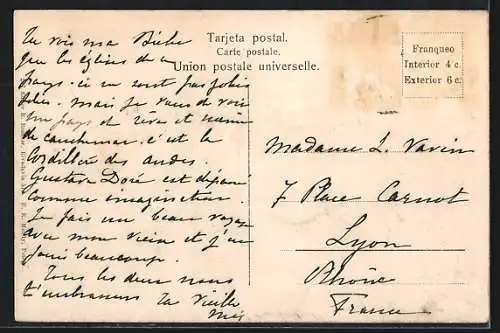 Tarjeta postal.
Carte postale.
Union postale universelle.
Franqueo
Interior 4 c.
Exterior 6 c.
Tu vois ma Biche
que les églises de ce
pays-ci ne sont pas jolies
jolies. mais je viens de voir
un pays de rêve et même
de cauchemar. c'est la
Cordillère des Andes.
Gustave Doré est dépassé
comme imagination.
Je fais un beau voyage
avec mon vieux et j'en
jouis beaucoup.
Tous les deux nous
t'embrassons ta vieille
Madame L. Vavin
7 Place Carnot
Lyon
Rhône
France